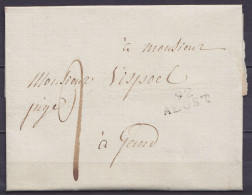 à monsieur
Monsieur Vispoel
juge
92
ALOST
à Gand